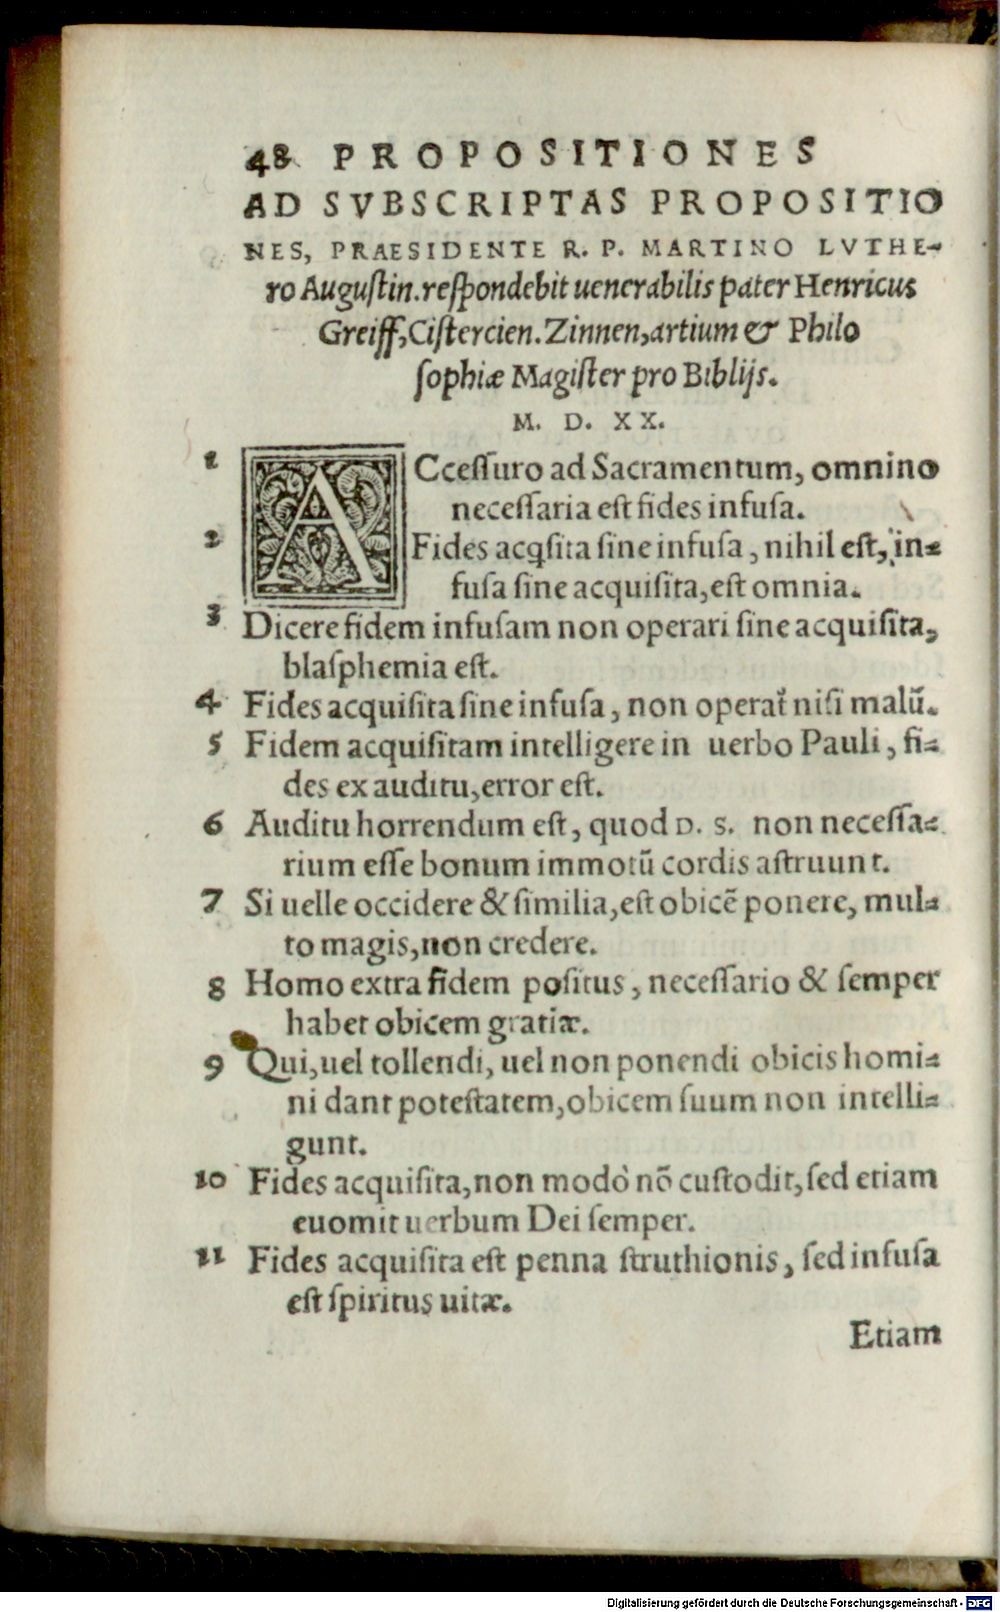 48 PROPOSITIONES
AD SVBSCRIPTAS PROPOSITIO
NES, PRAESIDENTE R. P. MARTINO LVTHE-
ro Auguſtin. reſpondebit uenerabilis pater Henricus
Greiff, Ciſtercien. Zinnen, artium & Philo
ſophiæ Magiſter pro Biblijs.
M. D. XX.
1 ACceſſuro ad Sacramentum, omnino
neceſſaria eſt fides infuſa.
2 Fides acꝗſita ſine infuſa, nihil eſt, in-
fuſa ſine acquiſita, eſt omnia.
3 Dicere fidem infuſam non operari ſine acquiſita,
blaſphemia eſt.
4 Fides acquiſita ſine infuſa, non operat᷑ niſi malũ.
5 Fidem acquiſitam intelligere in uerbo Pauli, fi-
des ex auditu, error eſt.
6 Auditu horrendum eſt, quod D. S. non neceſſa-
rium eſſe bonum immotũ cordis aſtruunt.
7 Si uelle occidere & ſimilia, eſt obicẽ ponere, mul-
to magis, non credere.
8 Homo extra fidem poſitus, neceſſario & ſemper
habet obicem gratiæ.
9 Qui, uel tollendi, uel non ponendi obicis homi-
ni dant poteſtatem, obicem ſuum non intelli-
gunt.
10 Fides acquiſita, non modò nõ cuſtodit, ſed etiam
euomit uerbum Dei ſemper.
11 Fides acquiſita eſt penna ſtruthionis, ſed infuſa
eſt ſpiritus uitæ.
Etiam
Digitalisierung gefördert durch die Deutsche Forschungsgemeinschaft - DFG